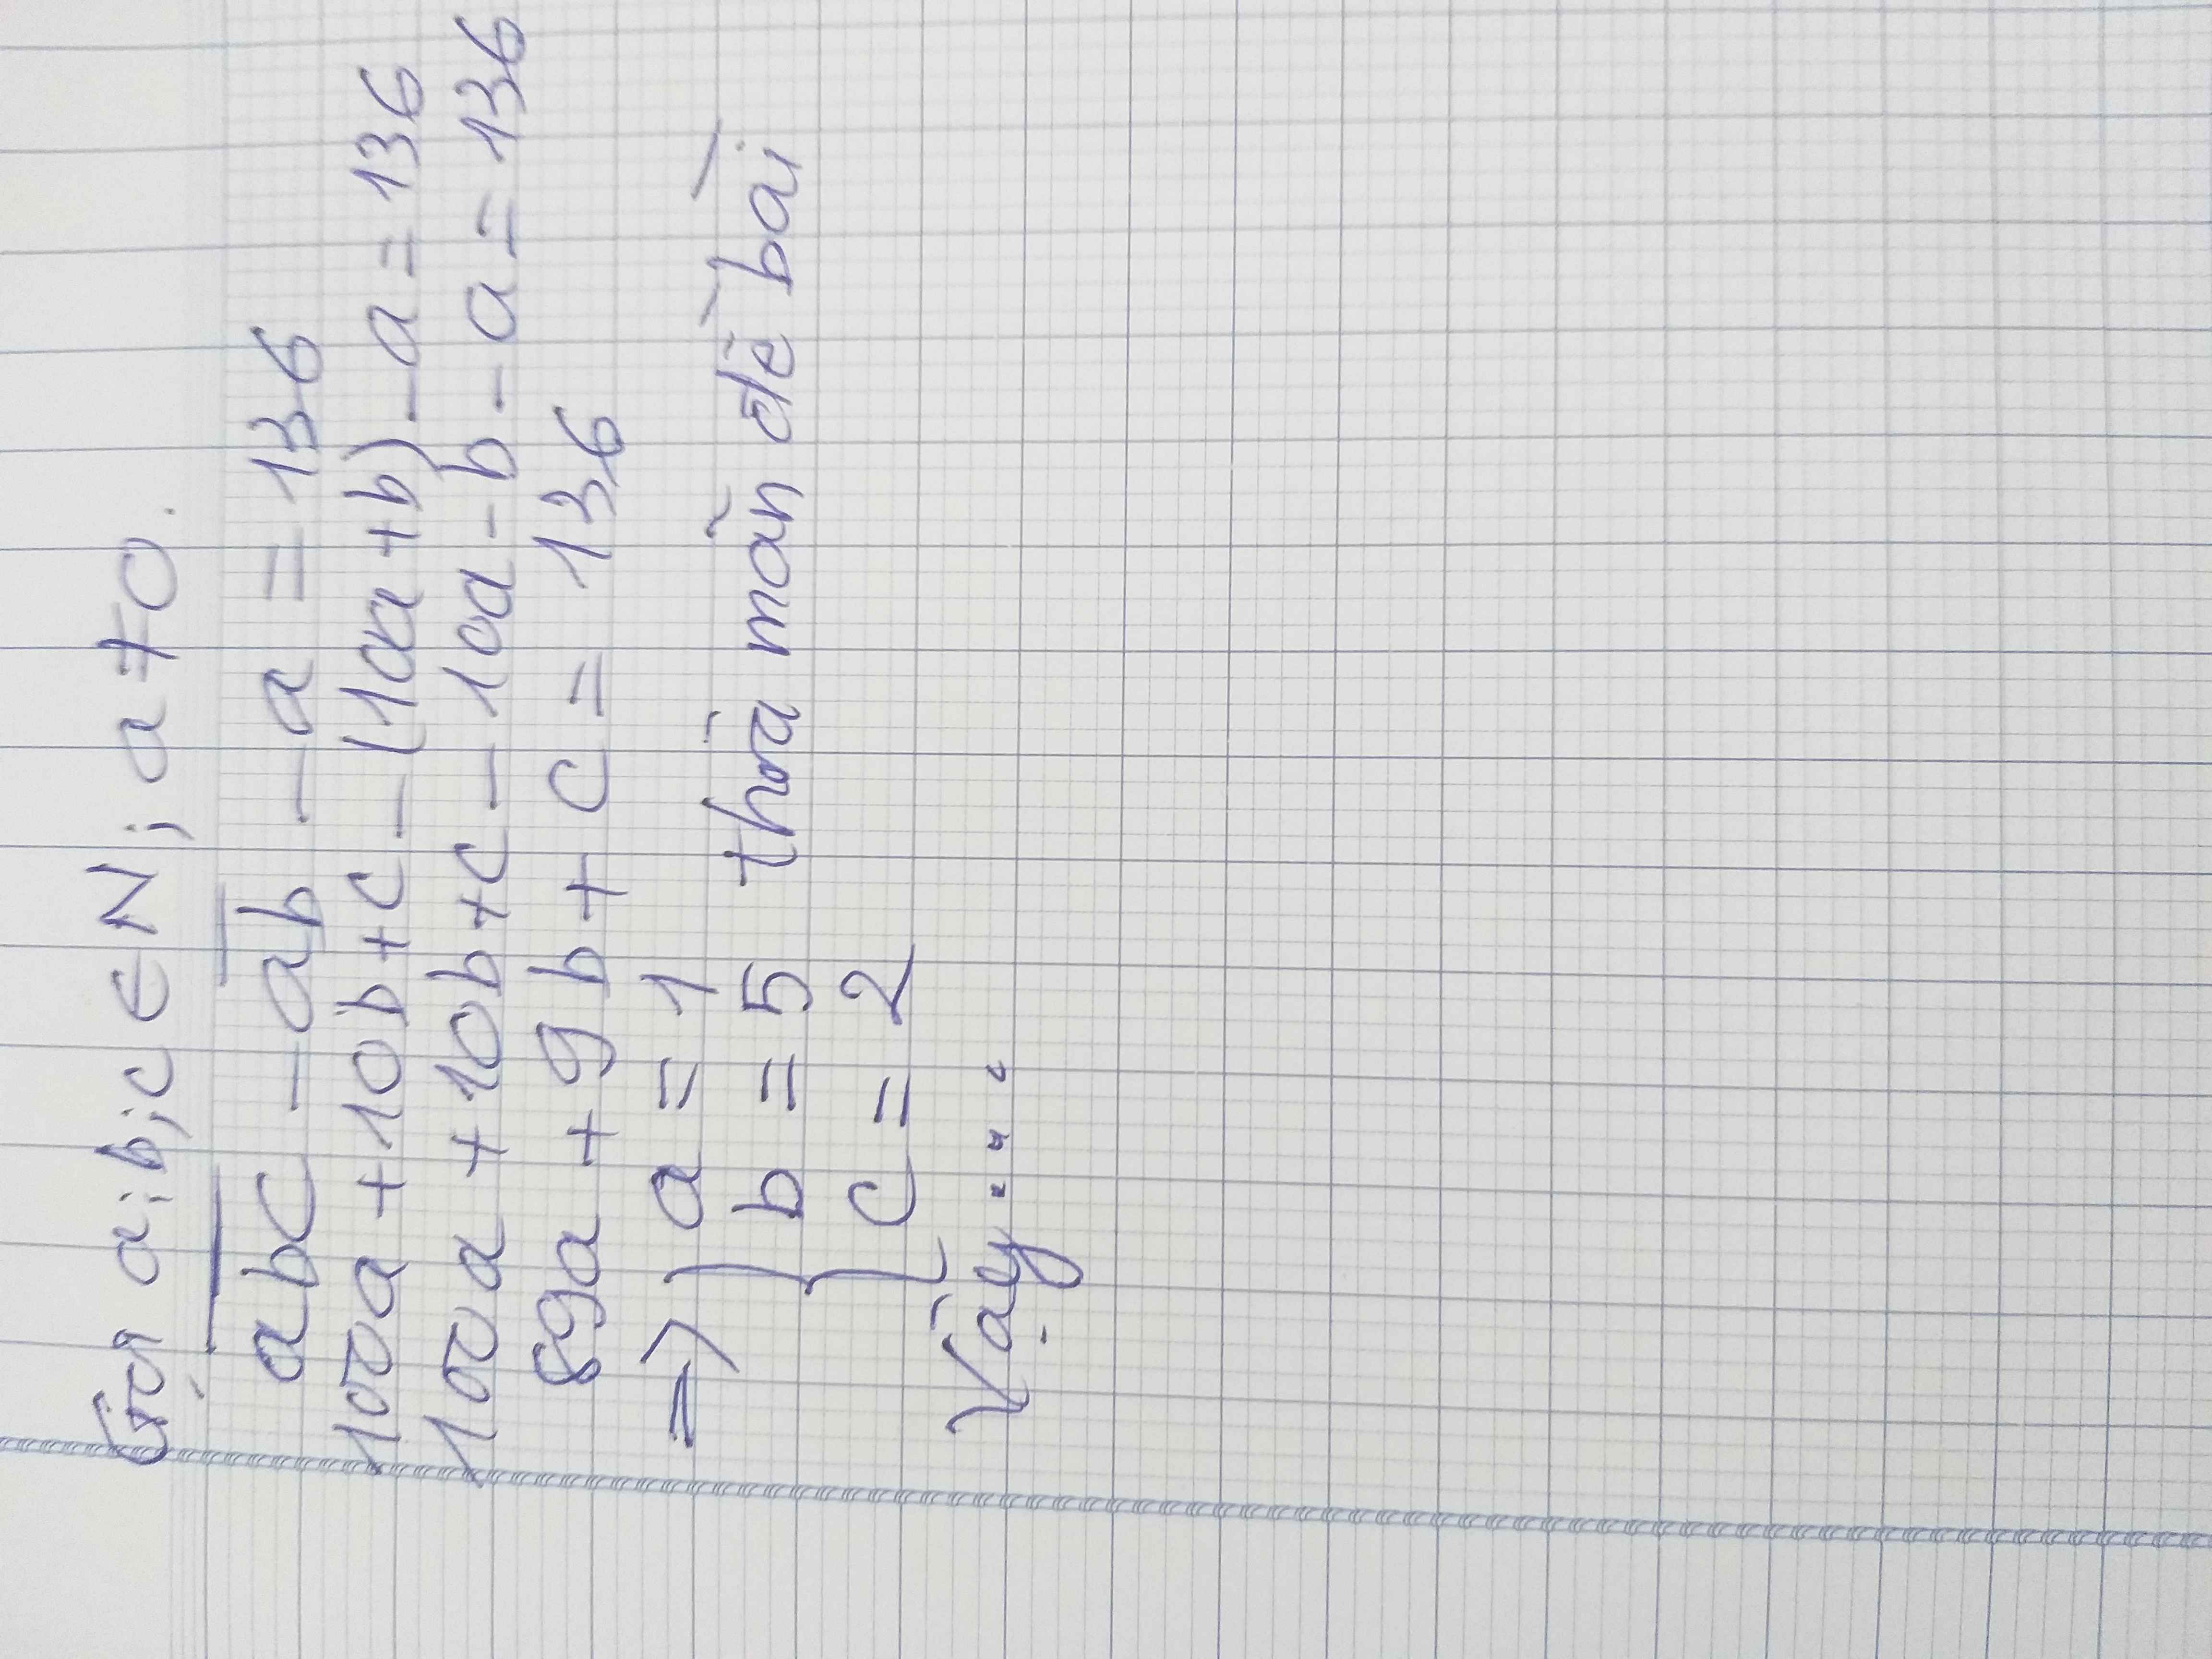 Gọi a;b;c ∈ N; a ≠ 0.
abc − ab − a = 136
100a + 10b + c − (10a + b) − a = 136
100a + 10b + c − 10a − b − a = 136
89a + 9b + c = 136
=> a = 1
b = 5 thỏa mãn đề bài
c = 2
Vậy....